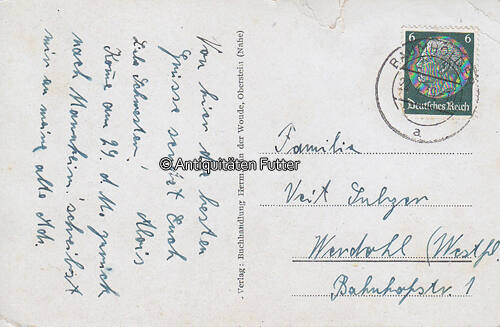 Von hier die besten
Grüsse sendet Euch
Alois
Komme am 29. d. Mts. zurück
nach Mannheim, schreibst
mir an meine alte Adr.
Verlag: Buchhandlung Hermann van der Woude, Oberstein (Nahe)
6 6
Deutsches Reich
a
Familie
Veit Sulzer
Werdohl (Westf.)
Bahnhofstr. 1
© Antiquitäten Futter